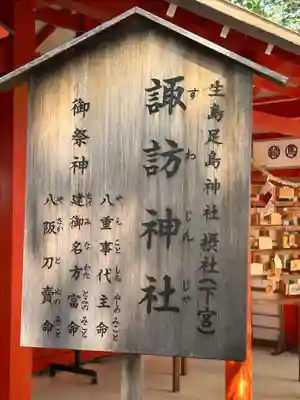 生島足島神社 摂社(下宮)
諏訪神社
すわじんじゃ
御祭神
八重事代主命
やえことしろぬしのみこと
建御名方富命
たけみなかたとみのみこと
八阪刀賣命
やさかとめのみこと
絵馬